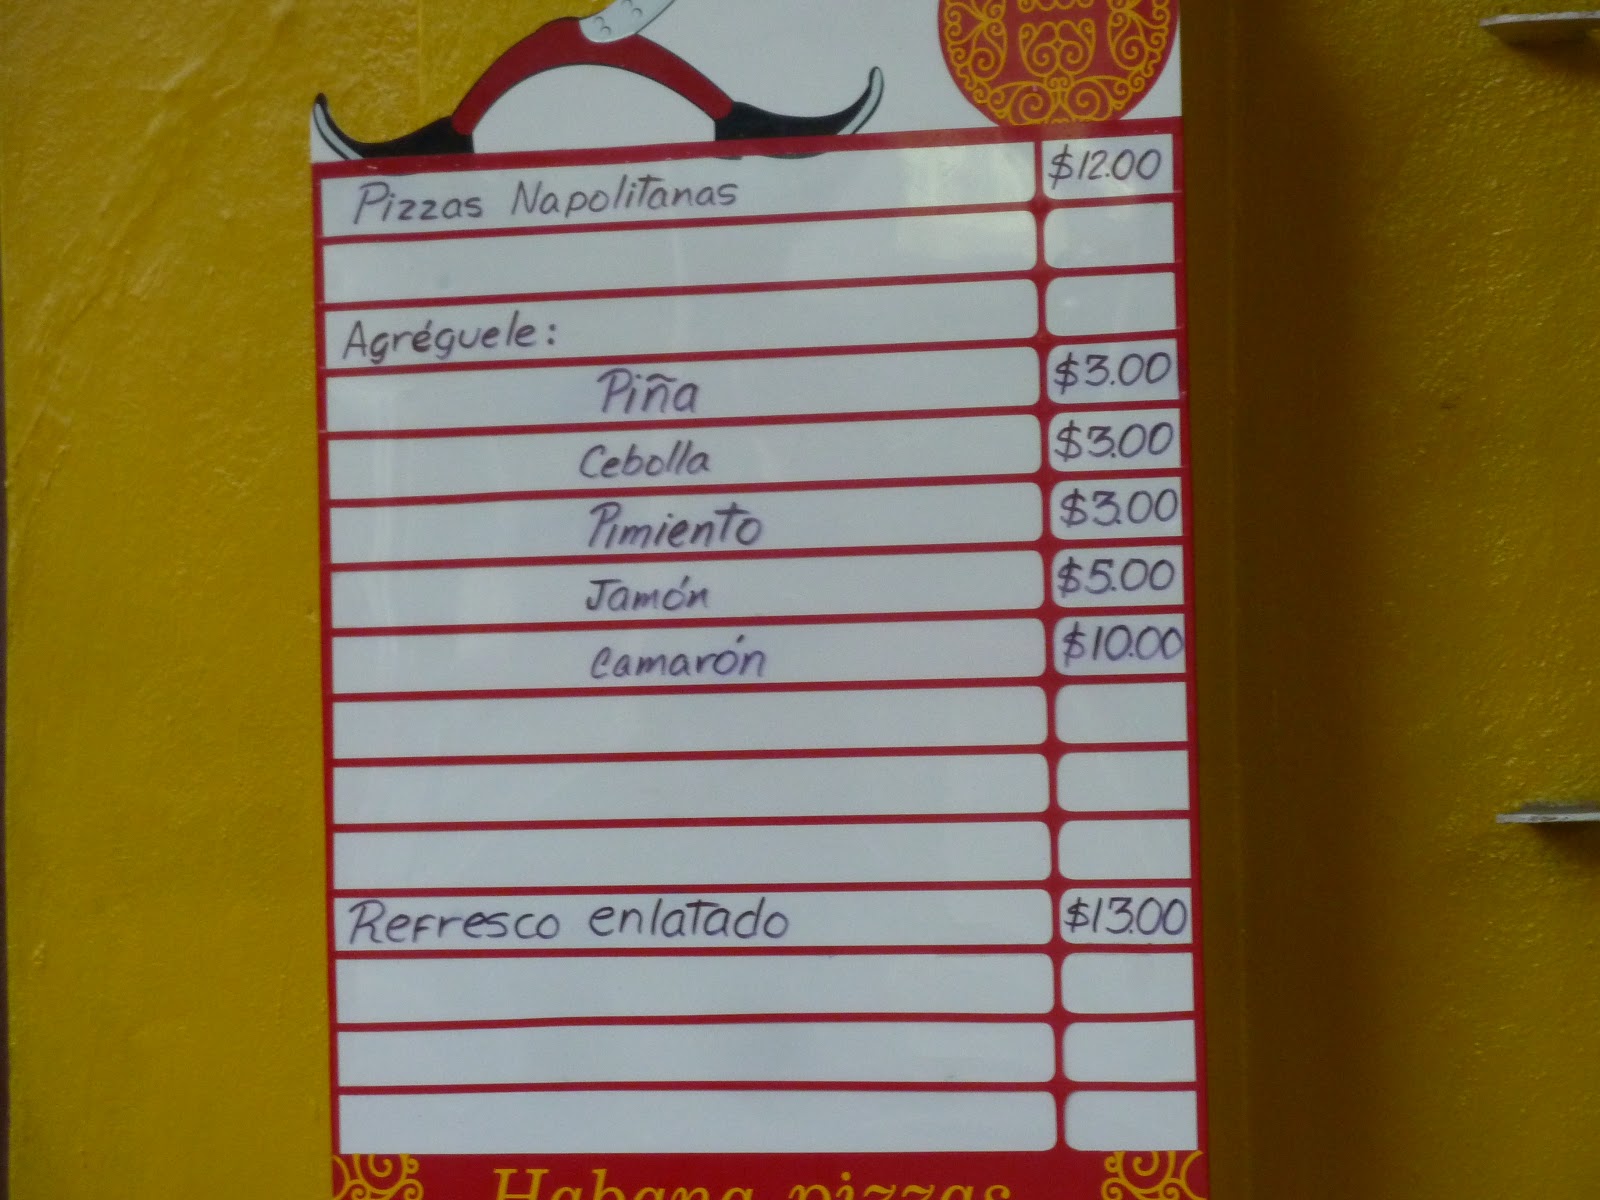 Pizzas Napolitanas $12.00
Agréguele:
Piña $3.00
Cebolla $3.00
Pimiento $3.00
Jamón $5.00
Camarón $10.00
Refresco enlatado $13.00
Habana pizzas